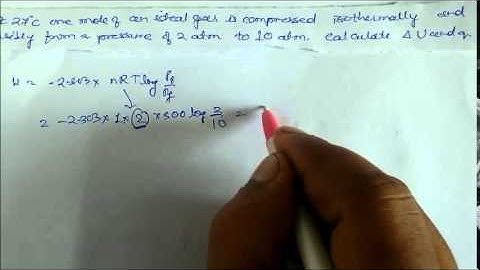 27°c one mole of an ideal gas is compressed isothermally and
from a pressure of 2 atm to 10 atm. calculate ΔU and q.
W = -2.303 × nRT log Pi/Pf
= -2.303 × 1 × 2 × 300 log 2/10 =